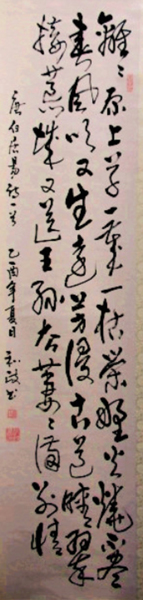 離〻原上草一歲一枯榮野火燒不盡
春風吹又生遠芳侵古道晴翠
接荒城又送王孫去萋〻滿別情
唐白居易詩一首 乙酉年夏日